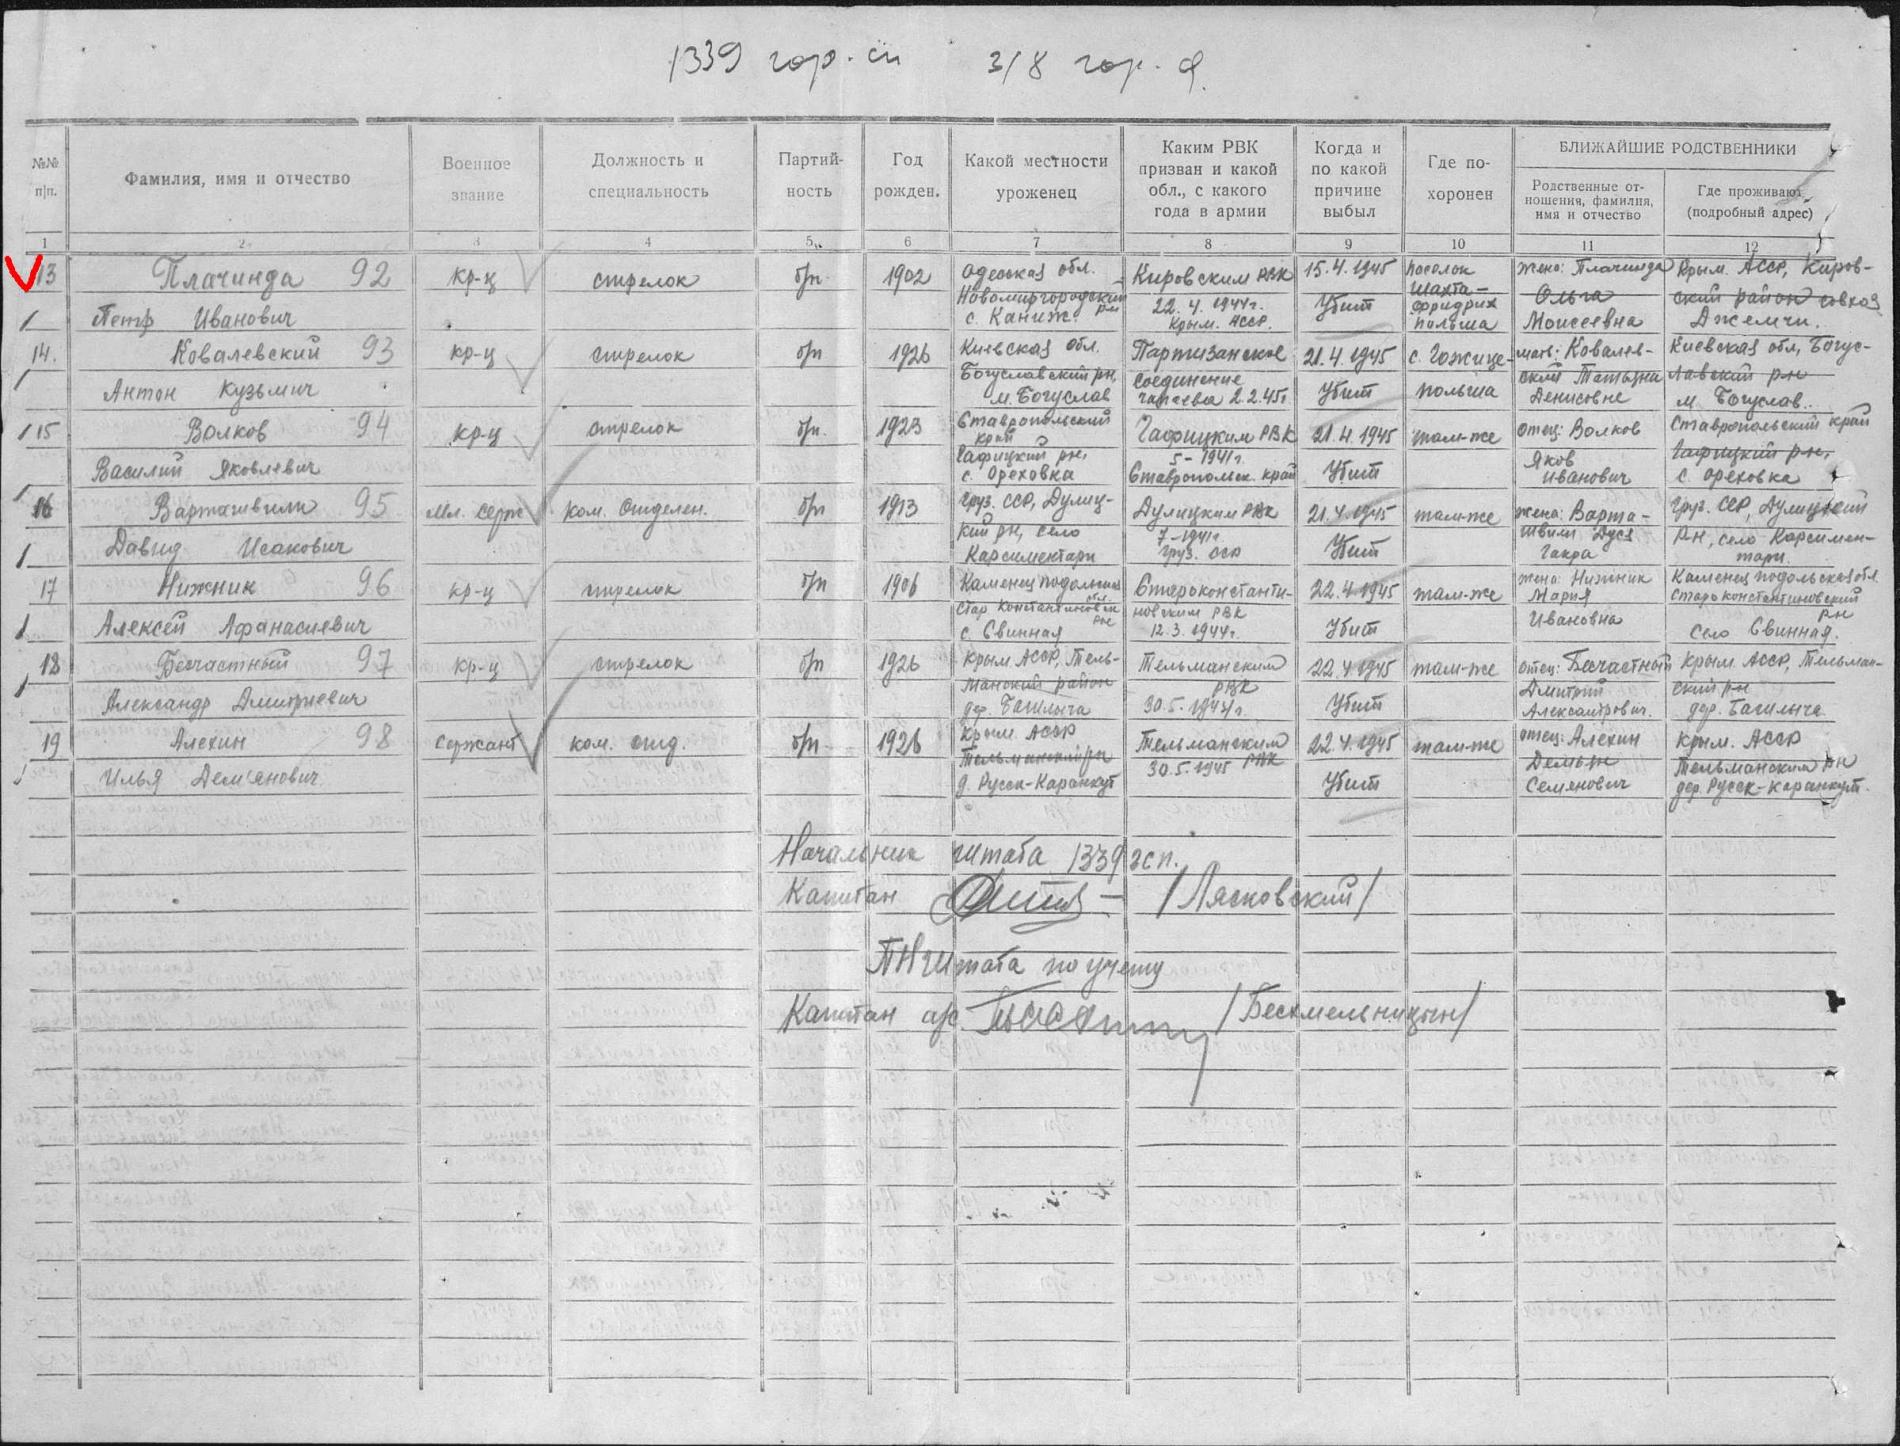 1339 гор. сп 318 гор. д.
№№ п/п.
Фамилия, имя и отчество
Военное звание
Должность и специальность
Партий-
ность
Год рожден.
Какой местности уроженец
Каким РВК
призван и какой
обл., с какого
года в армии
Когда и
по какой
причине
выбыл
Где по-
хоронен
БЛИЖАЙШИЕ РОДСТВЕННИКИ
Родственные от-
ношения, фамилия,
имя и отчество
Где проживают
(подробный адрес)
1 2 3 4 5 6 7 8 9 10 11 12
13 Плачинда 92 кр-ц стрелок б/п 1902 Одесская обл. Кировским РВК 15.4.1945 поселок жена: Плачинда Крым. АССР, Киров-
Новомиргородский рн 22.4.1944г. Убит шахта- Ольга ский район совхоз
Петр Иванович с. Каниж. Крым. АССР. Фридрих Польша Моисеевна Джемчи.
14. Ковалевский 93 кр-ц стрелок б/п 1926 Киевская обл. Партизанское 21.4.1945 с. Гожице- мать: Ковалев- Киевская обл, Богус-
Богуславский рн, соединение Убит польша ский Татьяна лавский рн
Антон Кузьмич м. Богуслав 2.2.45г Денисовне м. Богуслав.
15 Волков 94 кр-ц стрелок б/п. 1923 Ставропольский край 21.4.1945 там-же отец: Волков Ставропольский край
РВК 5-1941г. Яков
Василий Яковлевич с. Ореховка Ставропольск. край Убит Иванович с Ореховка
16 Варташвили 95 мл. серж ком. отделен. б/п 1913 Груз. ССР, Дулиц- Дулицким РВК 21.4.1945 там-же жена: Варта- Груз. ССР, Дулицкий
кий рн, село 7-1941г. швили рн, село Карсимен-
Давид Исакович Карсиментари Груз. сср Убит тари.
17 Нижник 96 кр-ц стрелок б/п 1906 Каменец подольская обл. Староконстанти- 22.4.1945 там-же жена: Нижник Каменец подольская обл.
Стар Константиновск рн новским РВК Мария Староконстантиновский рн
Алексей Афанасиевич с. Свинная 12.3.1944г. Убит Ивановна село Свинная.
18 Бесчастный 97 кр-ц стрелок б/п 1926 Крым АССР, Тель- Тельманским 22.4.1945 там-же отец: Бесчастный Крым. АССР, Тельман-
манский район РВК Дмитрий ский рн
Александр Дмитриевич дер. 30.5.1944г. Убит Александрович. дер.
19 Алехин 98 сержант ком. отд. б/п 1926 Крым АССР Тельманским 22.4.1945 там-же отец: Алехин Крым. АССР
Тельманский рн 30.5.1945 РВК Демьян Тельманским рн
Илья Дем'янович. д. Русск-Каранкут Убит Семенович дер. Русск-Каранкут.
Начальник штаба 1339 гсп.
Капитан /Лясковский/
ПНштаба по учету
Капитан а/с /Бесхмельницын/